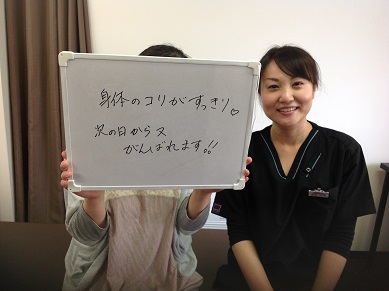 身体のコリがすっきり♡
次の日から又
がんばれます!!